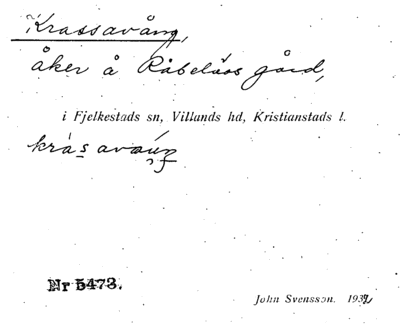 Krassavång,
åker å Råbelöos gård,
i Fjelkestads sn, Villands hd, Kristianstads l.
Nr 5473.
John Svensson. 1932